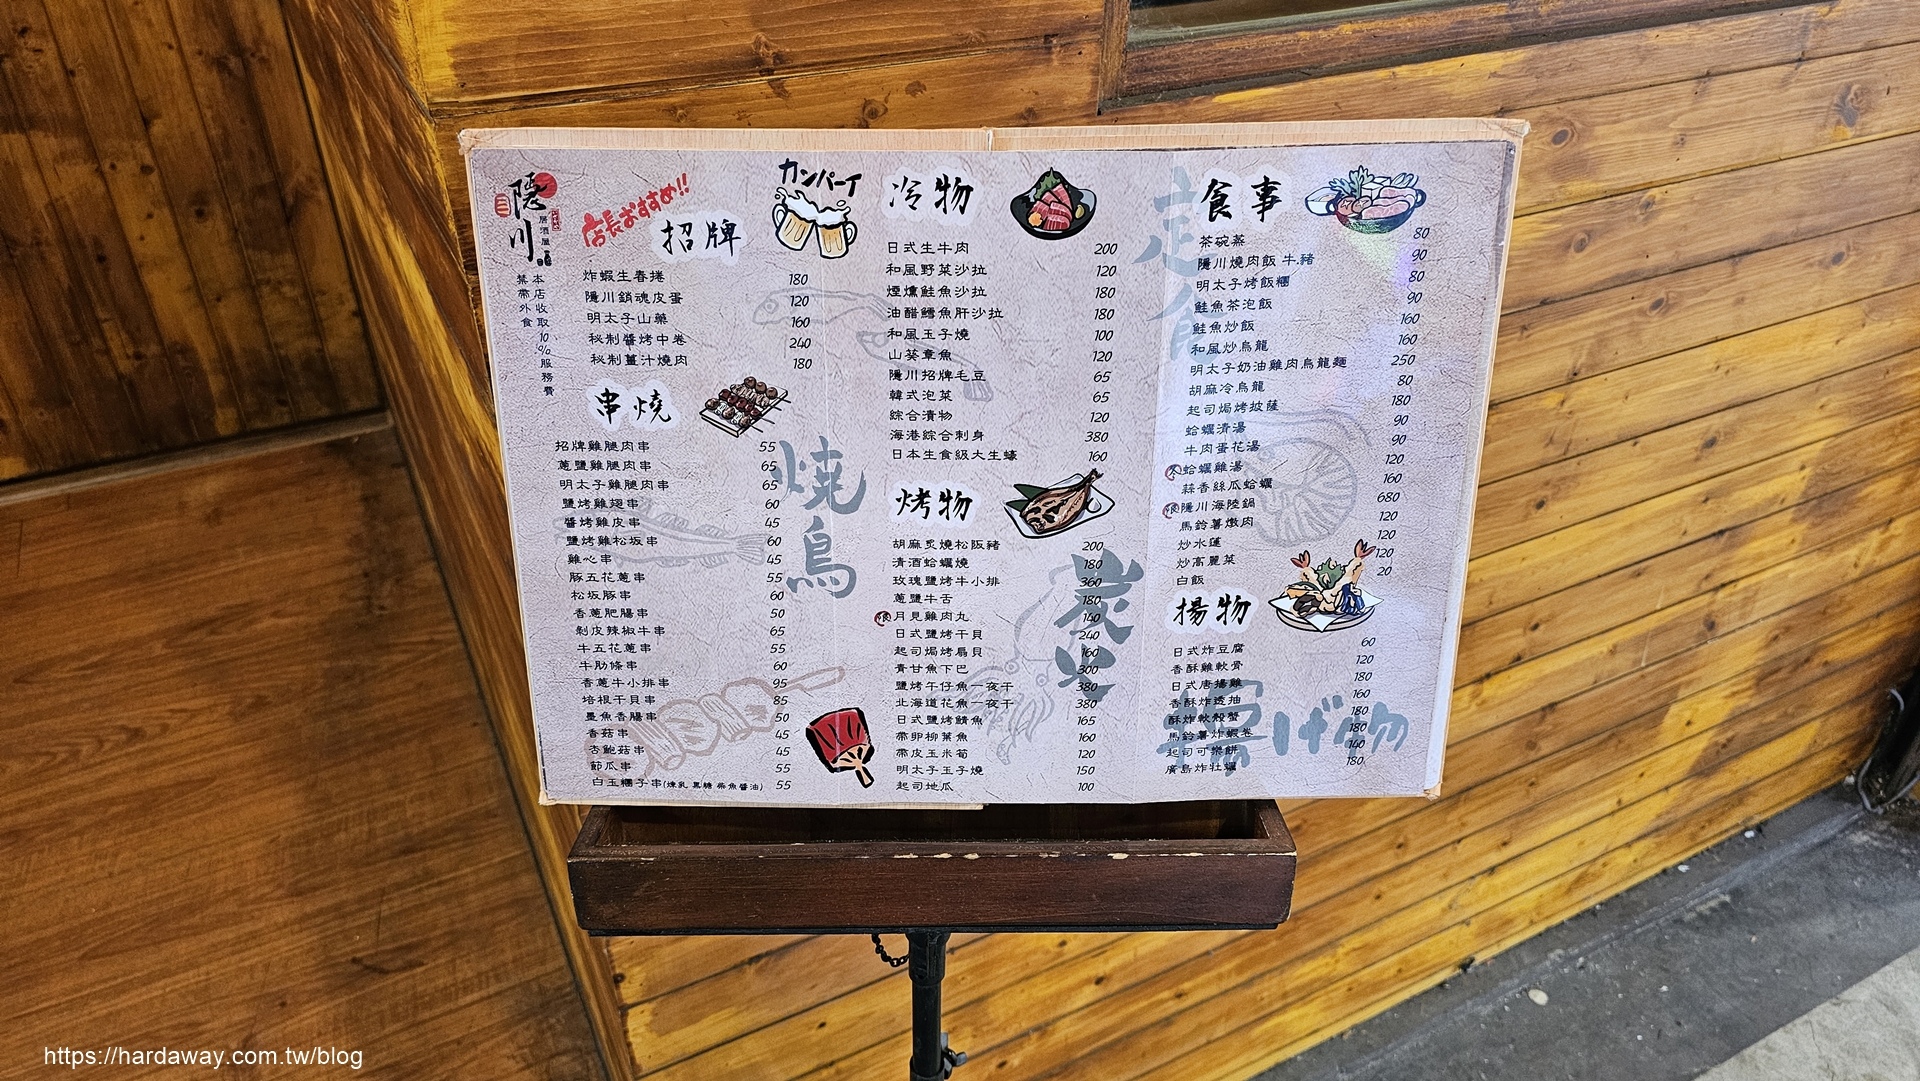 隱川
居酒屋
本店收取10%服務費
禁帶外食
店長おすすめ!!
招牌
カンパーイ
炸蝦生春捲 180
隱川銷魂皮蛋 120
明太子山藥 160
秘制醬烤中卷 240
秘制薑汁燒肉 180
串燒
招牌雞腿肉串 55
蔥鹽雞腿肉串 65
明太子雞腿肉串 65
鹽烤雞翅串 60
醬烤雞皮串 45
鹽烤雞松坂串 60
雞心串 45
豚五花蔥串 55
松坂豚串 60
香蔥肥腸串 50
剝皮辣椒牛串 65
牛五花蔥串 55
牛肋條串 60
香蔥牛小排串 95
培根干貝串 85
墨魚香腸串 50
香菇串 45
杏鮑菇串 45
節瓜串 55
白玉糰子串(煉乳 黑糖 柴魚醬油) 55
燒鳥
冷物
日式生牛肉 200
和風野菜沙拉 120
煙燻鮭魚沙拉 180
油醋鱈魚肝沙拉 180
和風玉子燒 100
山葵章魚 120
隱川招牌毛豆 65
韓式泡菜 65
綜合漬物 120
海港綜合刺身 380
日本生食級大生蠔 160
烤物
胡麻炙燒松阪豬 200
清酒蛤蠣燒 180
玫瑰鹽烤牛小排 360
蔥鹽牛舌 180
月見雞肉丸 140
日式鹽烤干貝 240
起司焗烤扇貝 160
青甘魚下巴 300
鹽烤午仔魚一夜干 380
北海道花魚一夜干 380
日式鹽烤鯖魚 165
帶卵柳葉魚 160
帶皮玉米筍 120
明太子玉子燒 150
起司地瓜 100
炭火
食事
茶碗蒸 80
隱川燒肉飯 牛.豬 90
明太子烤飯糰 80
鮭魚茶泡飯 90
鮭魚炒飯 160
和風炒烏龍 160
明太子奶油雞肉烏龍麵 250
胡麻冷烏龍 80
起司焗烤披薩 180
蛤蠣清湯 90
牛肉蛋花湯 90
蛤蠣雞湯 120
蒜香絲瓜蛤蠣 160
隱川海陸鍋 680
馬鈴薯燉肉 120
炒水蓮 120
炒高麗菜 120
白飯 20
揚物
日式炸豆腐 60
香酥雞軟骨 120
日式唐揚雞 180
香酥炸透抽 160
酥炸軟殼蟹 180
馬鈴薯炸蝦卷 180
起司可樂餅 140
廣島炸牡蠣 180
げ物
https://hardaway.com.tw/blog